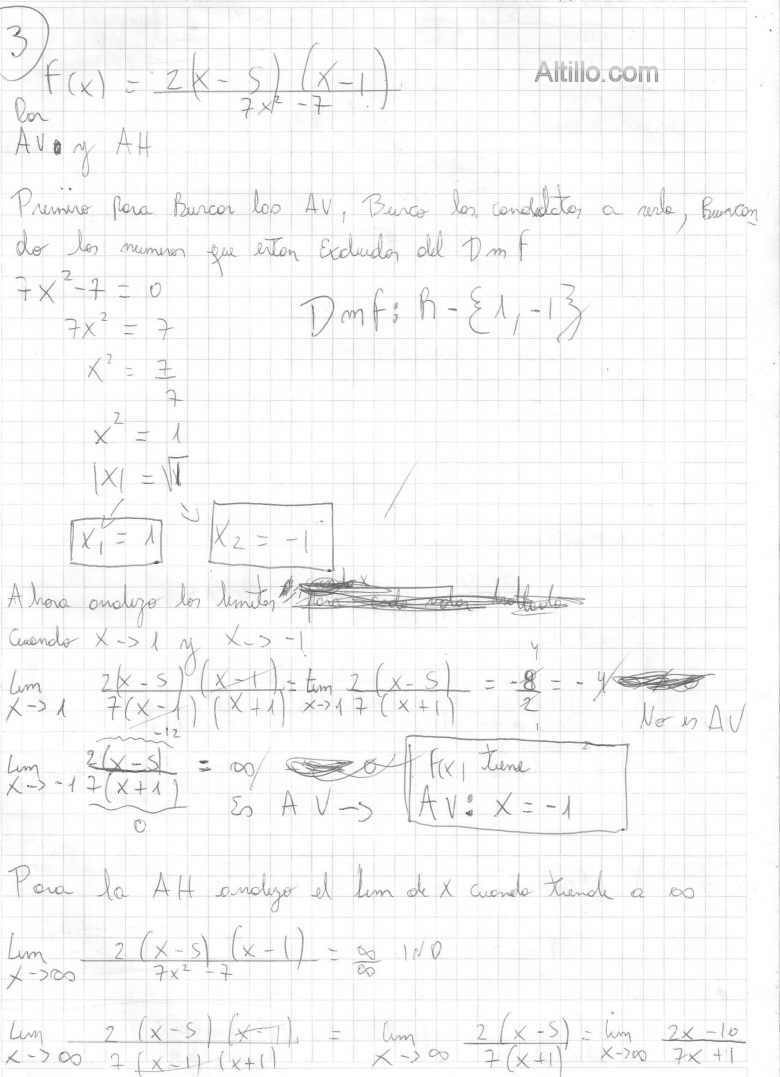 3
f(x) = 2(x-5) (x-1) / 7x² - 7
Altillo.com
Por
AV y AH
Primero para Buscar los AV, Busco los candidatos a serlo, Buscan
do los numeros que estan Excluidos del Dm f
7x² - 7 = 0
Dmf: R - {1, -1}
7x² = 7
x² = 7/7
x² = 1
|x| = √1
x₁ = 1 x₂ = -1
Ahora analizo los limites
Cuando x -> 1 y x -> -1
Lim x->1 2(x-5) (x-1) / 7(x-1) (x+1) = lim x->1 2(x-5) / 7(x+1) = -8/2 = -4
4
1
No es AV
-12
Lim x->-1 2(x-5) / 7(x+1) = ∞
0
Es AV ->
f(x) tiene
AV: x = -1
Para la AH analizo el lim de x cuando tiende a ∞
Lim x->∞ 2(x-5) (x-1) / 7x² - 7 = ∞/∞ IND
Lim x->∞ 2(x-5) (x-1) / 7(x-1) (x+1) = Lim x->∞ 2(x-5) / 7(x+1) = lim x->∞ 2x-10 / 7x+1